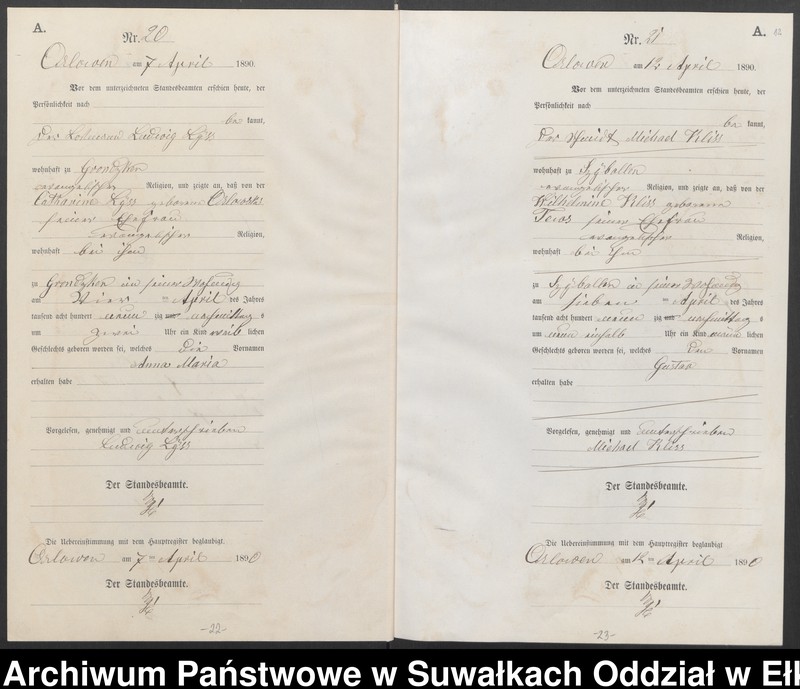 A.
Nr. 20
Orlowen am 7 April 1890.
Vor dem unterzeichneten Standesbeamten erschien heute, der
Persönlichkeit nach
be kannt,
der Losmann Ludwig Lyss
wohnhaft zu Grondzken
evangelischer Religion, und zeigte an, daß von der
Catharine Lyss geborene Orlowski
seiner Ehefrau
evangelischer Religion,
wohnhaft bei ihm
zu Grondzken in seiner Wohnung
am Vier ten April des Jahres
tausend acht hundert neun zig nachmittag s
um zwei Uhr ein Kind weib lichen
Geschlechts geboren worden sei, welches die Vornamen
Anna Maria
erhalten habe
Vorgelesen, genehmigt und unterschrieben
Ludwig Lyss
Der Standesbeamte.
Die Uebereinstimmung mit dem Hauptregister beglaubigt.
Orlowen am 7 ten April 1890
Der Standesbeamte.
-22-
A. 12
Nr. 21
Orlowen am 12 April 1890.
Vor dem unterzeichneten Standesbeamten erschien heute, der
Persönlichkeit nach
be kannt,
der Schmidt Michael Kliss
wohnhaft zu Szyballen
evangelischer Religion, und zeigte an, daß von der
Wilhelmine Kliss geborene
seiner Ehefrau
evangelischer Religion,
wohnhaft bei ihm
zu Szyballen in seiner Wohnung
am sieben ten April des Jahres
tausend acht hundert neun zig nachmittag s
um neun einhalb Uhr ein Kind männ lichen
Geschlechts geboren worden sei, welches den Vornamen
Gustav
erhalten habe
Vorgelesen, genehmigt und unterschrieben
Michael Kliss
Der Standesbeamte.
Die Uebereinstimmung mit dem Hauptregister beglaubigt
Orlowen am 12 ten April 1890
Der Standesbeamte.
-23-
Archiwum Państwowe w Suwałkach Oddział w Ełk